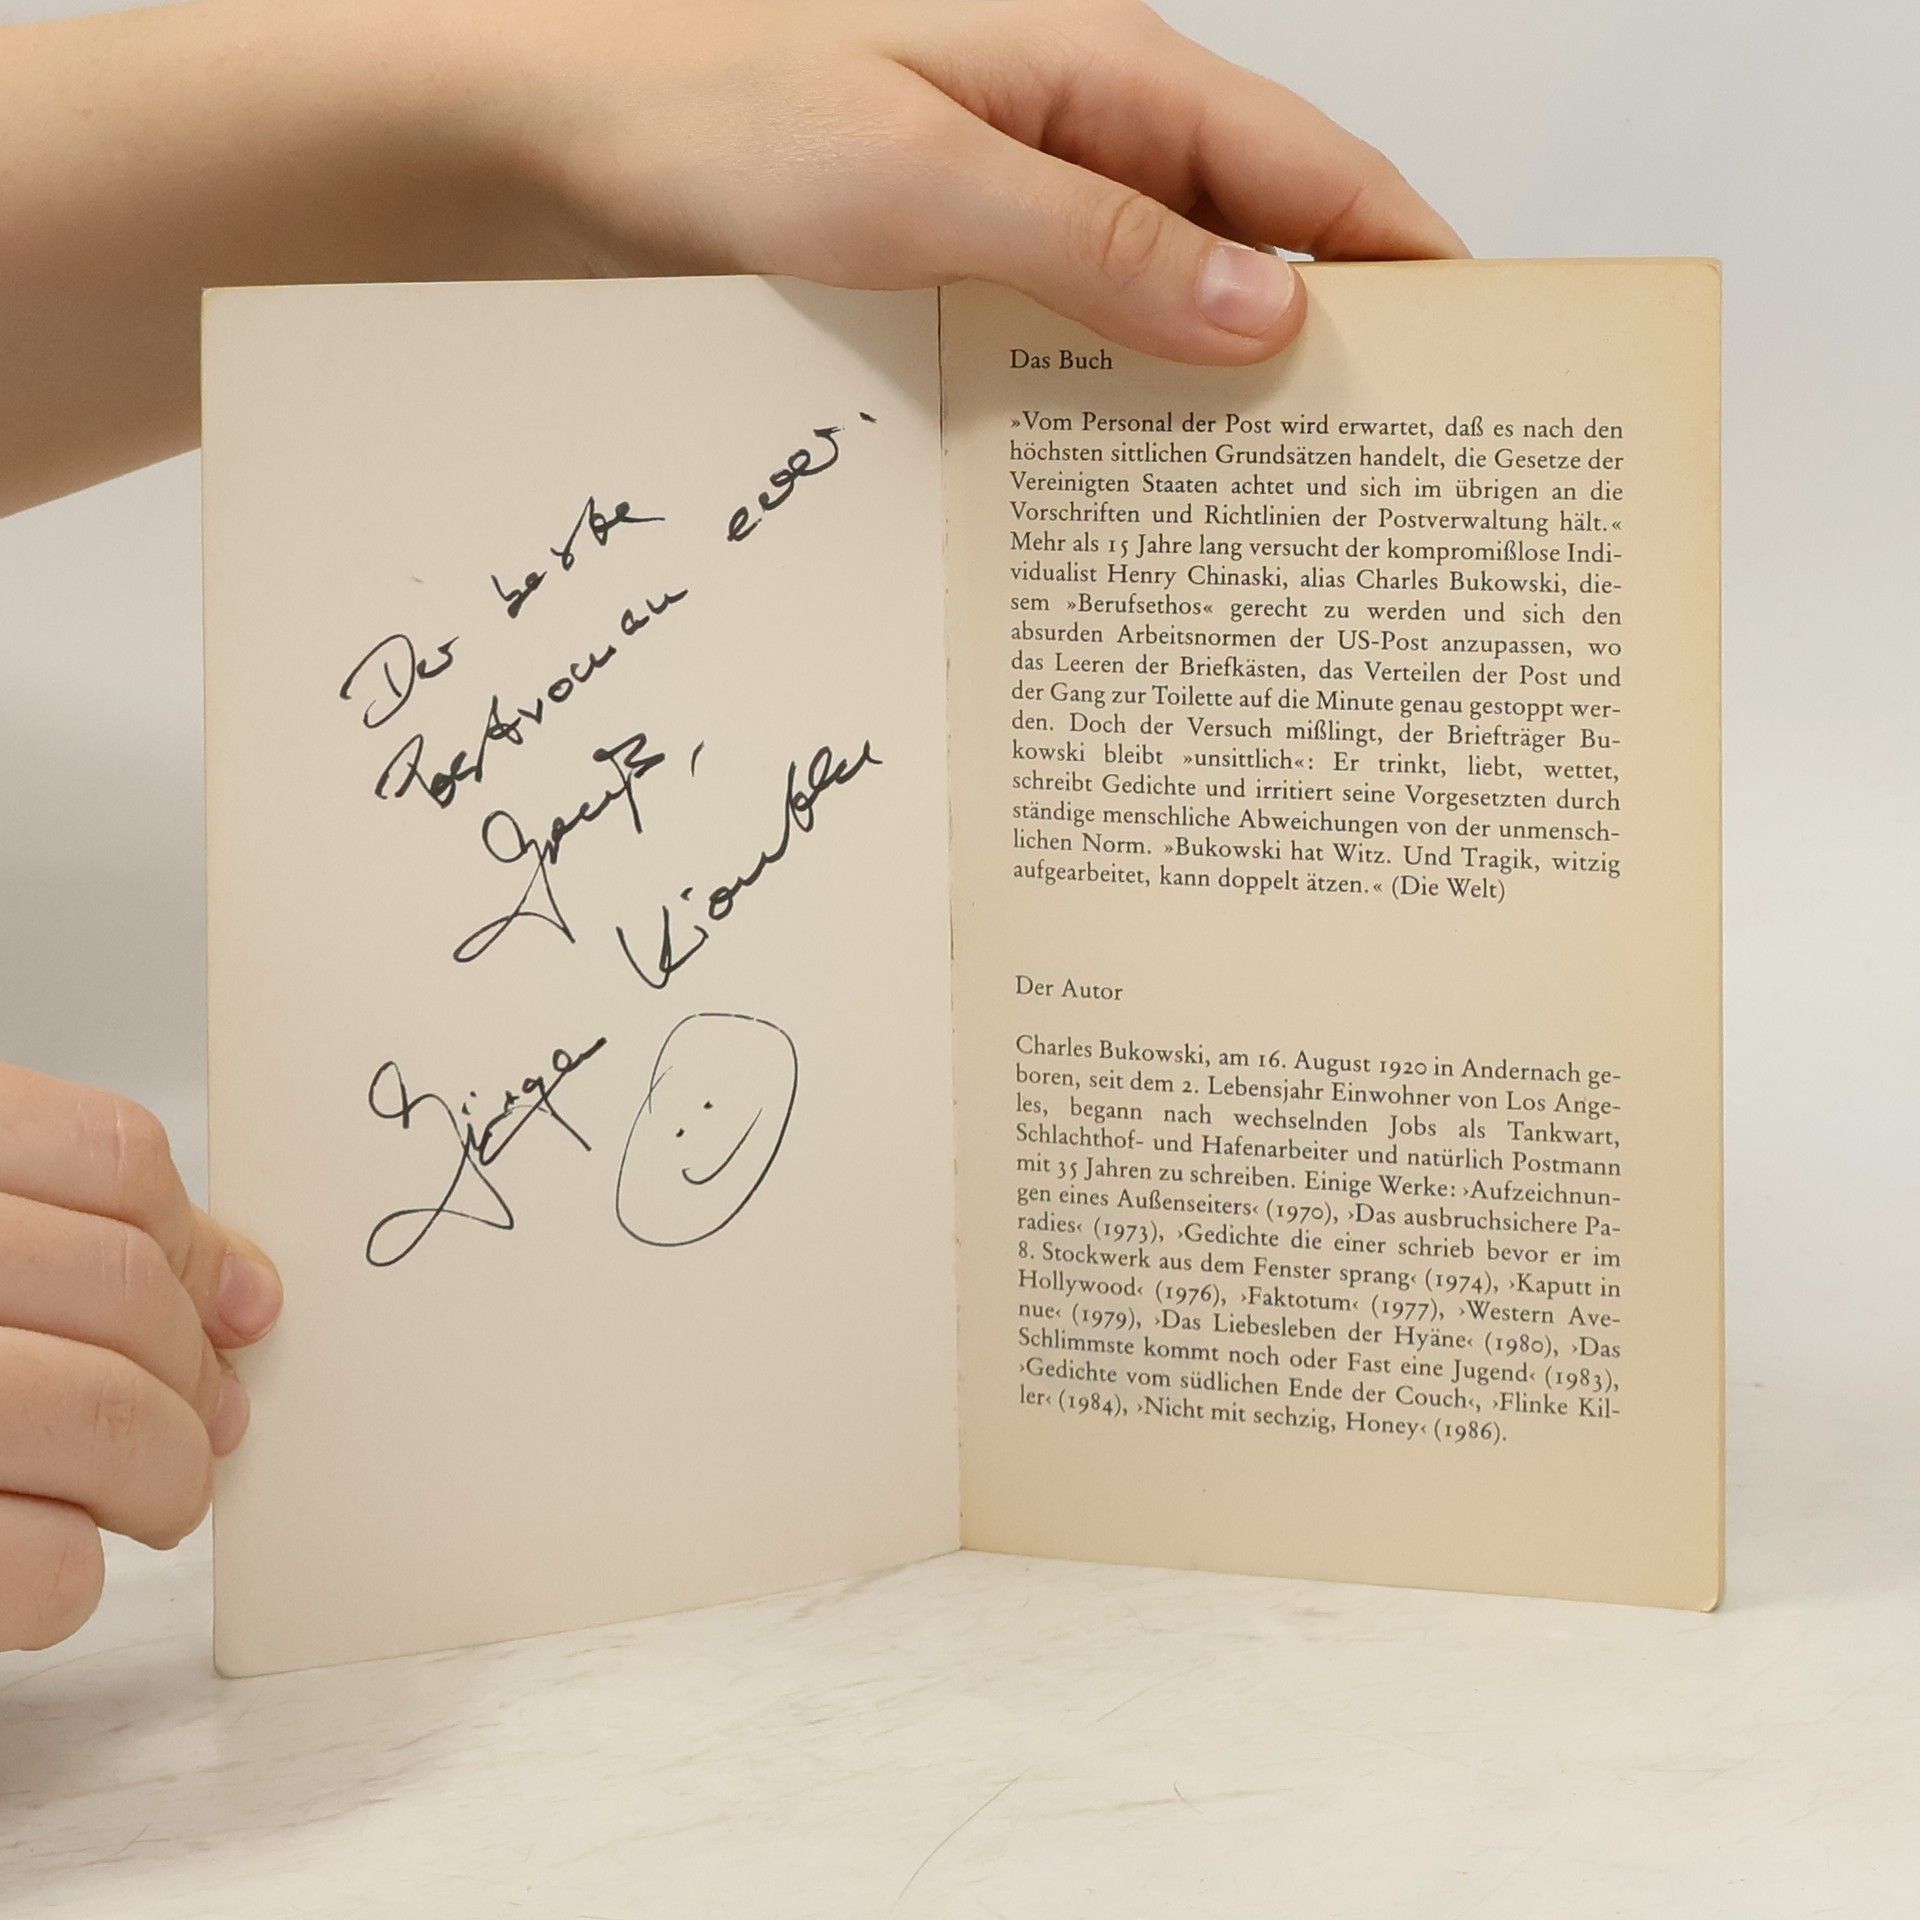 Der beste
Postroman ever.
Gruß,
Jürgen
Das Buch
»Vom Personal der Post wird erwartet, daß es nach den
höchsten sittlichen Grundsätzen handelt, die Gesetze der
Vereinigten Staaten achtet und sich im übrigen an die
Vorschriften und Richtlinien der Postverwaltung hält.«
Mehr als 15 Jahre lang versucht der kompromißlose Indi-
vidualist Henry Chinaski, alias Charles Bukowski, die-
sem »Berufsethos« gerecht zu werden und sich den
absurden Arbeitsnormen der US-Post anzupassen, wo
das Leeren der Briefkästen, das Verteilen der Post und
der Gang zur Toilette auf die Minute genau gestoppt wer-
den. Doch der Versuch mißlingt, der Briefträger Bu-
kowski bleibt »unsittlich«: Er trinkt, liebt, wettet,
schreibt Gedichte und irritiert seine Vorgesetzten durch
ständige menschliche Abweichungen von der unmensch-
lichen Norm. »Bukowski hat Witz. Und Tragik, witzig
aufgearbeitet, kann doppelt ätzen.« (Die Welt)
Der Autor
Charles Bukowski, am 16. August 1920 in Andernach ge-
boren, seit dem 2. Lebensjahr Einwohner von Los Ange-
les, begann nach wechselnden Jobs als Tankwart,
Schlachthof- und Hafenarbeiter und natürlich Postmann
mit 35 Jahren zu schreiben. Einige Werke: ›Aufzeichnun-
gen eines Außenseiters‹ (1970), ›Das ausbruchsichere Pa-
radies‹ (1973), ›Gedichte die einer schrieb bevor er im
8. Stockwerk aus dem Fenster sprang‹ (1974), ›Kaputt in
Hollywood‹ (1976), ›Faktotum‹ (1977), ›Western Ave-
nue‹ (1979), ›Das Liebesleben der Hyäne‹ (1980), ›Das
Schlimmste kommt noch oder Fast eine Jugend‹ (1983),
›Gedichte vom südlichen Ende der Couch‹, ›Flinke Kil-
ler‹ (1984), ›Nicht mit sechzig, Honey‹ (1986).